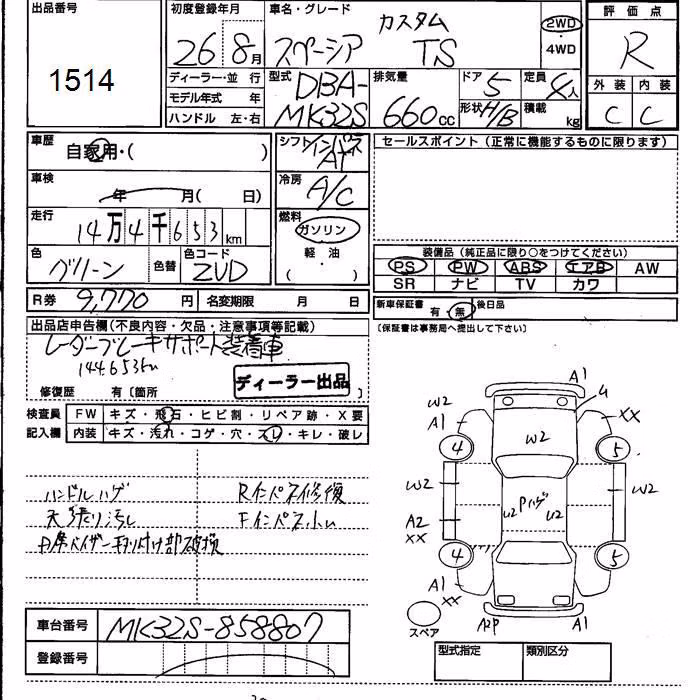 出品番号 初度登録年月 車名・グレード 評価点
1514 26 8月 スペーシア カスタム TS 2WD ・ 4WD R
ディーラー・並 行 型式 排気量 ドア 定員 外装 内装
モデル年式 年 DBA- 660cc 5 4人 C C
ハンドル 左・右 MK32S 形状 H/B 積載 kg
車歴 シフト インパネ AT セールスポイント（正常に機能するものに限ります）
自家用・( )
車検 冷房
年 月( 日) A/C
走行 燃料
14万4千653km ガソリン
色 色コード 軽・油 装備品（純正品に限り○をつけてください）
グリーン 色替 ZVD ( ) PS PW ABS エアB AW
SR ナビ TV カワ
R券 9,770円 名変期限 月 日 新車保証書 有・無 後日品
出品店申告欄(不良内容・欠品・注意事項等記載) 〔保証書は事務局へ提出して下さい〕
レーダーブレーキサポート装着車
144,653km
修復歴 有〔箇所 ディーラー出品
検査員 FW キズ・飛石・ヒビ割・リペア跡・X要
記入欄 内装 キズ・汚れ・コゲ・穴・スレ・キレ・破レ
ハンドルハゲ Rインパネ修復
天張り汚れ Fインパネ小U
P席バイザー取り付け部破損
A1
W2 U XX
A1 W2
4 5
W2 Pハゲ W2
U2 U2
A2
XX
4 5
A1
XX
スペア A2P A1
車台番号 MK32S-858807
登録番号 型式指定 類別区分